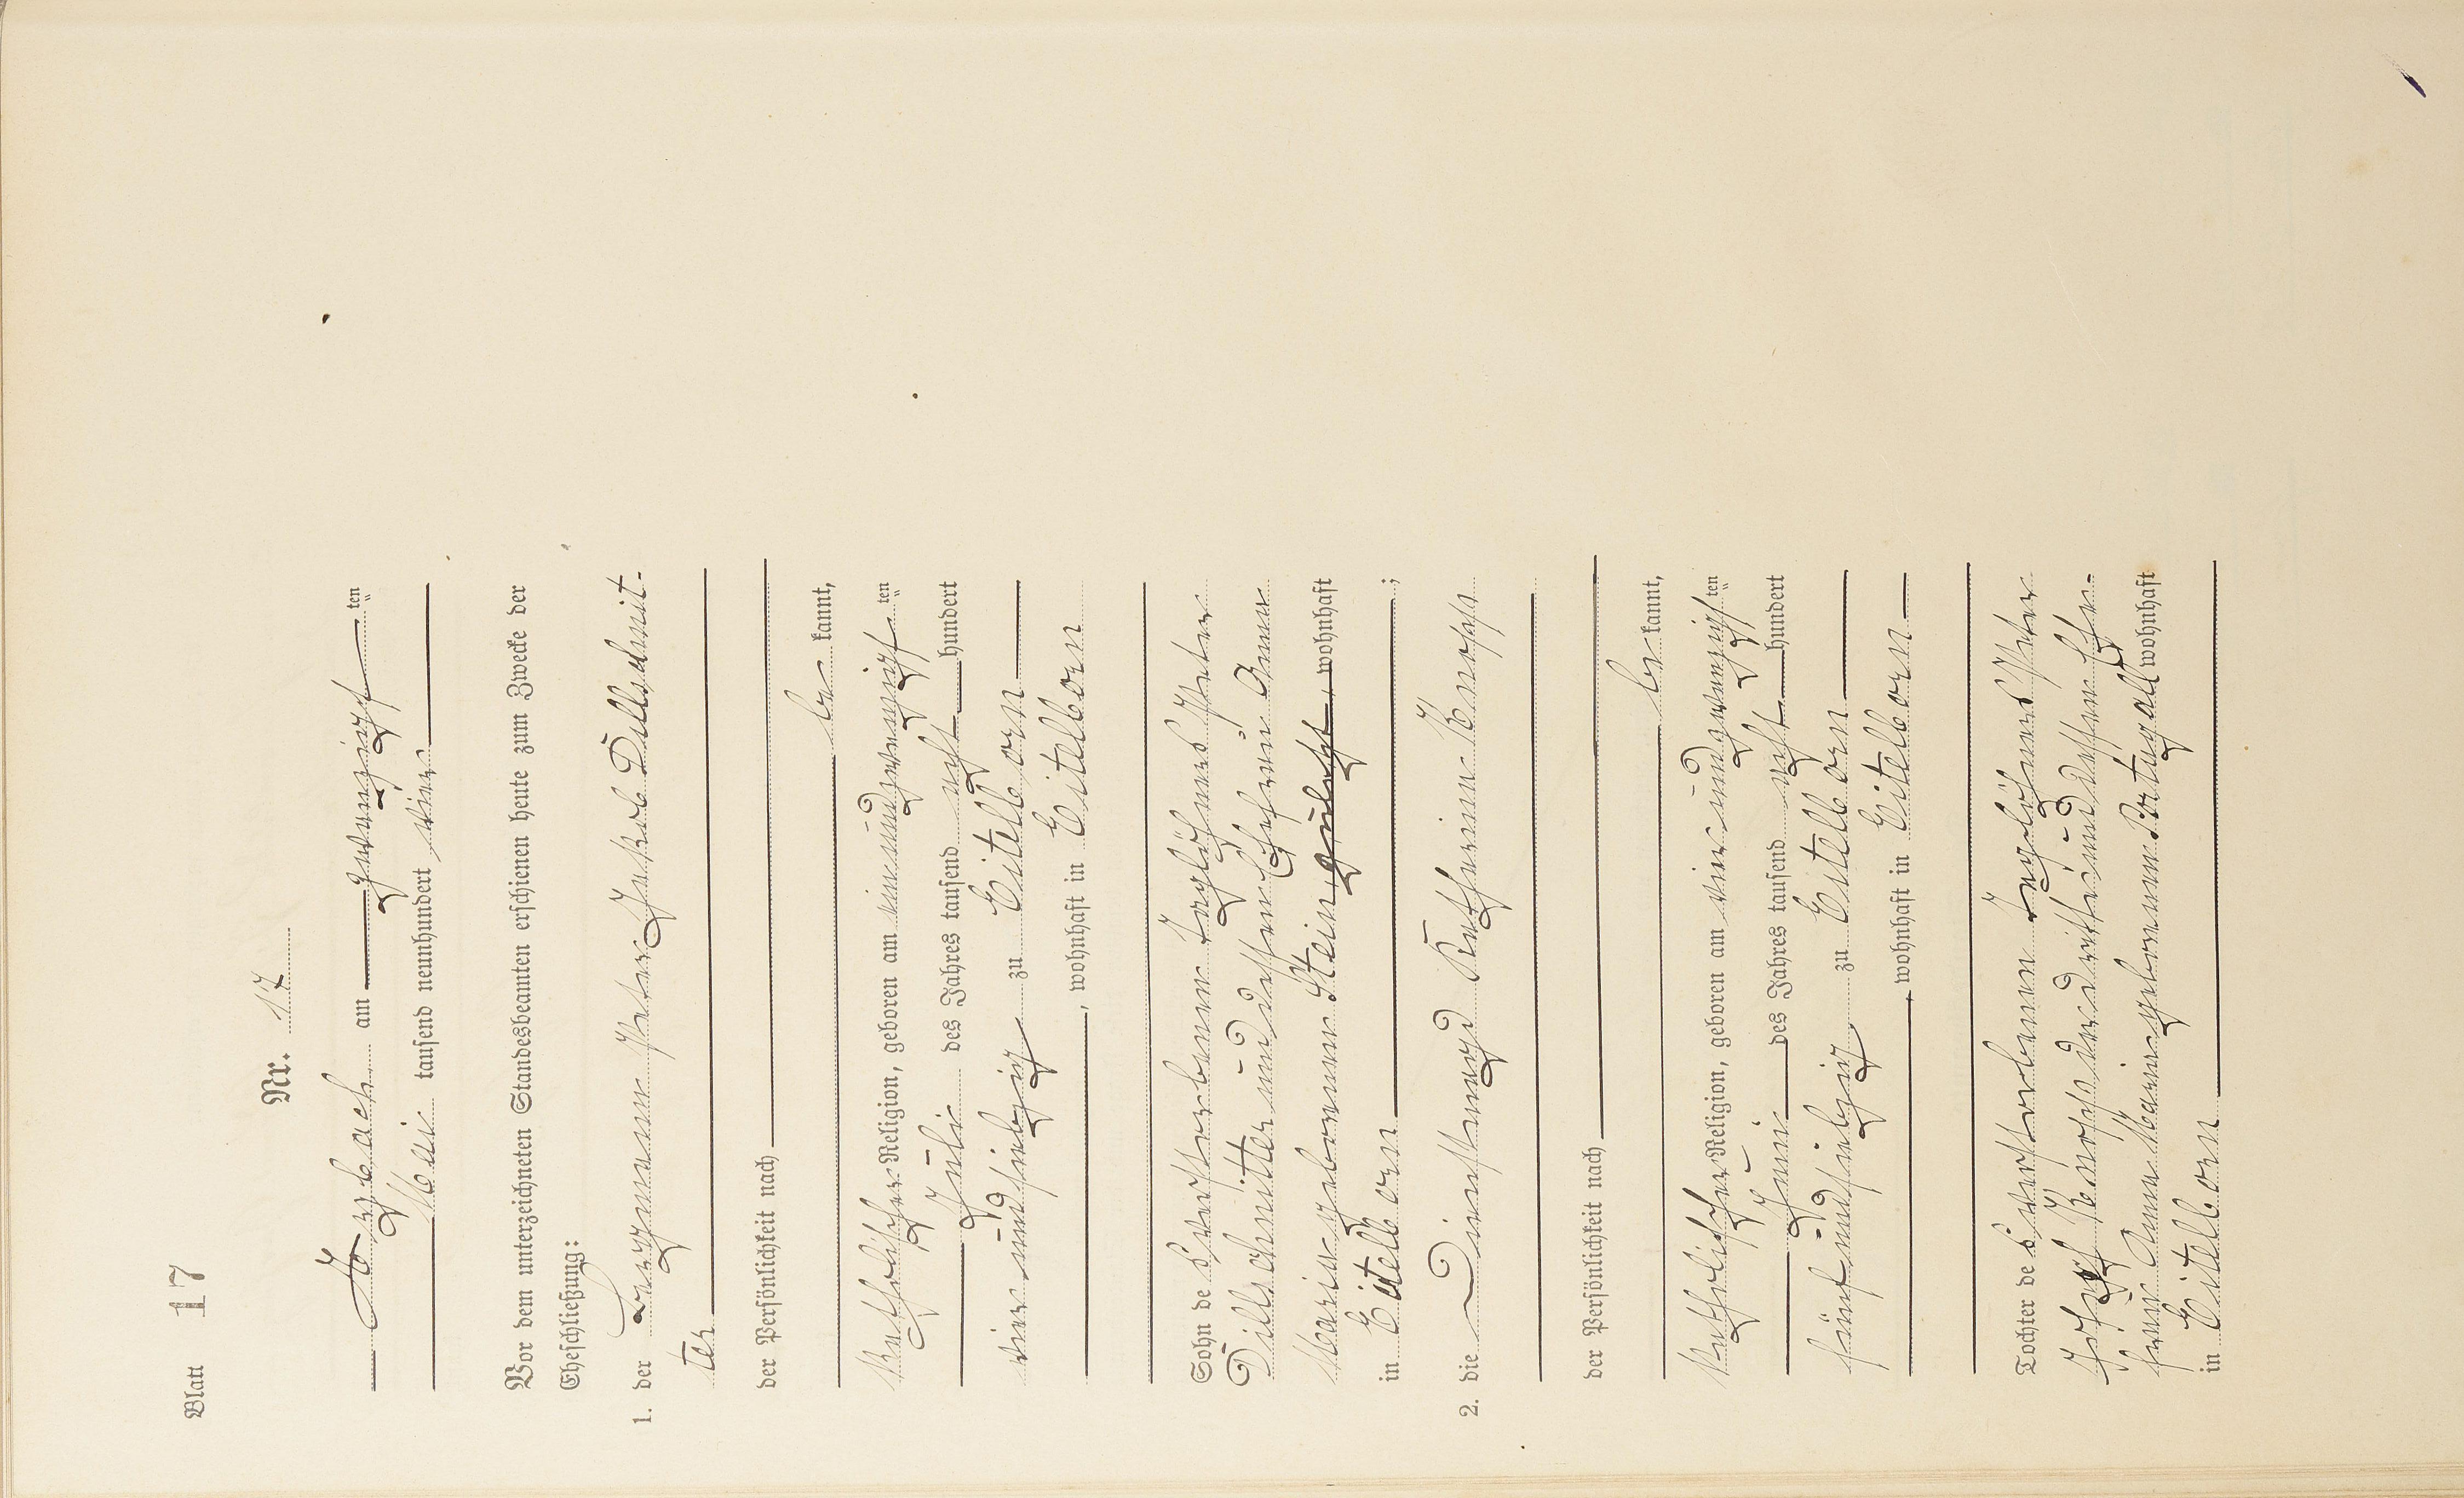 Blatt 17
Nr. 17
Horbach am zwanzigsten
Mai tausend neunhundert vier
Vor dem unterzeichneten Standesbeamten erschienen heute zum Zwecke der
Eheschließung:
1. der Bergmann Peter Jakob Dillschnit-
ter
der Persönlichkeit nach
be kannt,
katholischer Religion, geboren am einundzwanzigsten
Juli des Jahres tausend acht hundert
vier und siebzig zu Eitelborn
, wohnhaft in Eitelborn
Sohn des verstorbenen Taglöhners Peter
Dillschnitter und dessen Ehefrau Anna
Maria geborenen Stein, zuletzt, wohnhaft
in Eitelborn ;
2. die Dienstmagd Katharina Knopp
der Persönlichkeit nach
be kannt,
katholischer Religion, geboren am vier und zwanzigsten
Juni des Jahres tausend acht hundert
fünf und siebzig zu Eitelborn
, wohnhaft in Eitelborn
Tochter des verstorbenen Taglöhners Peter
Josef Knopp der dritte und dessen Ehe-
frau Anna Maria geborenen Portugall wohnhaft
in Eitelborn